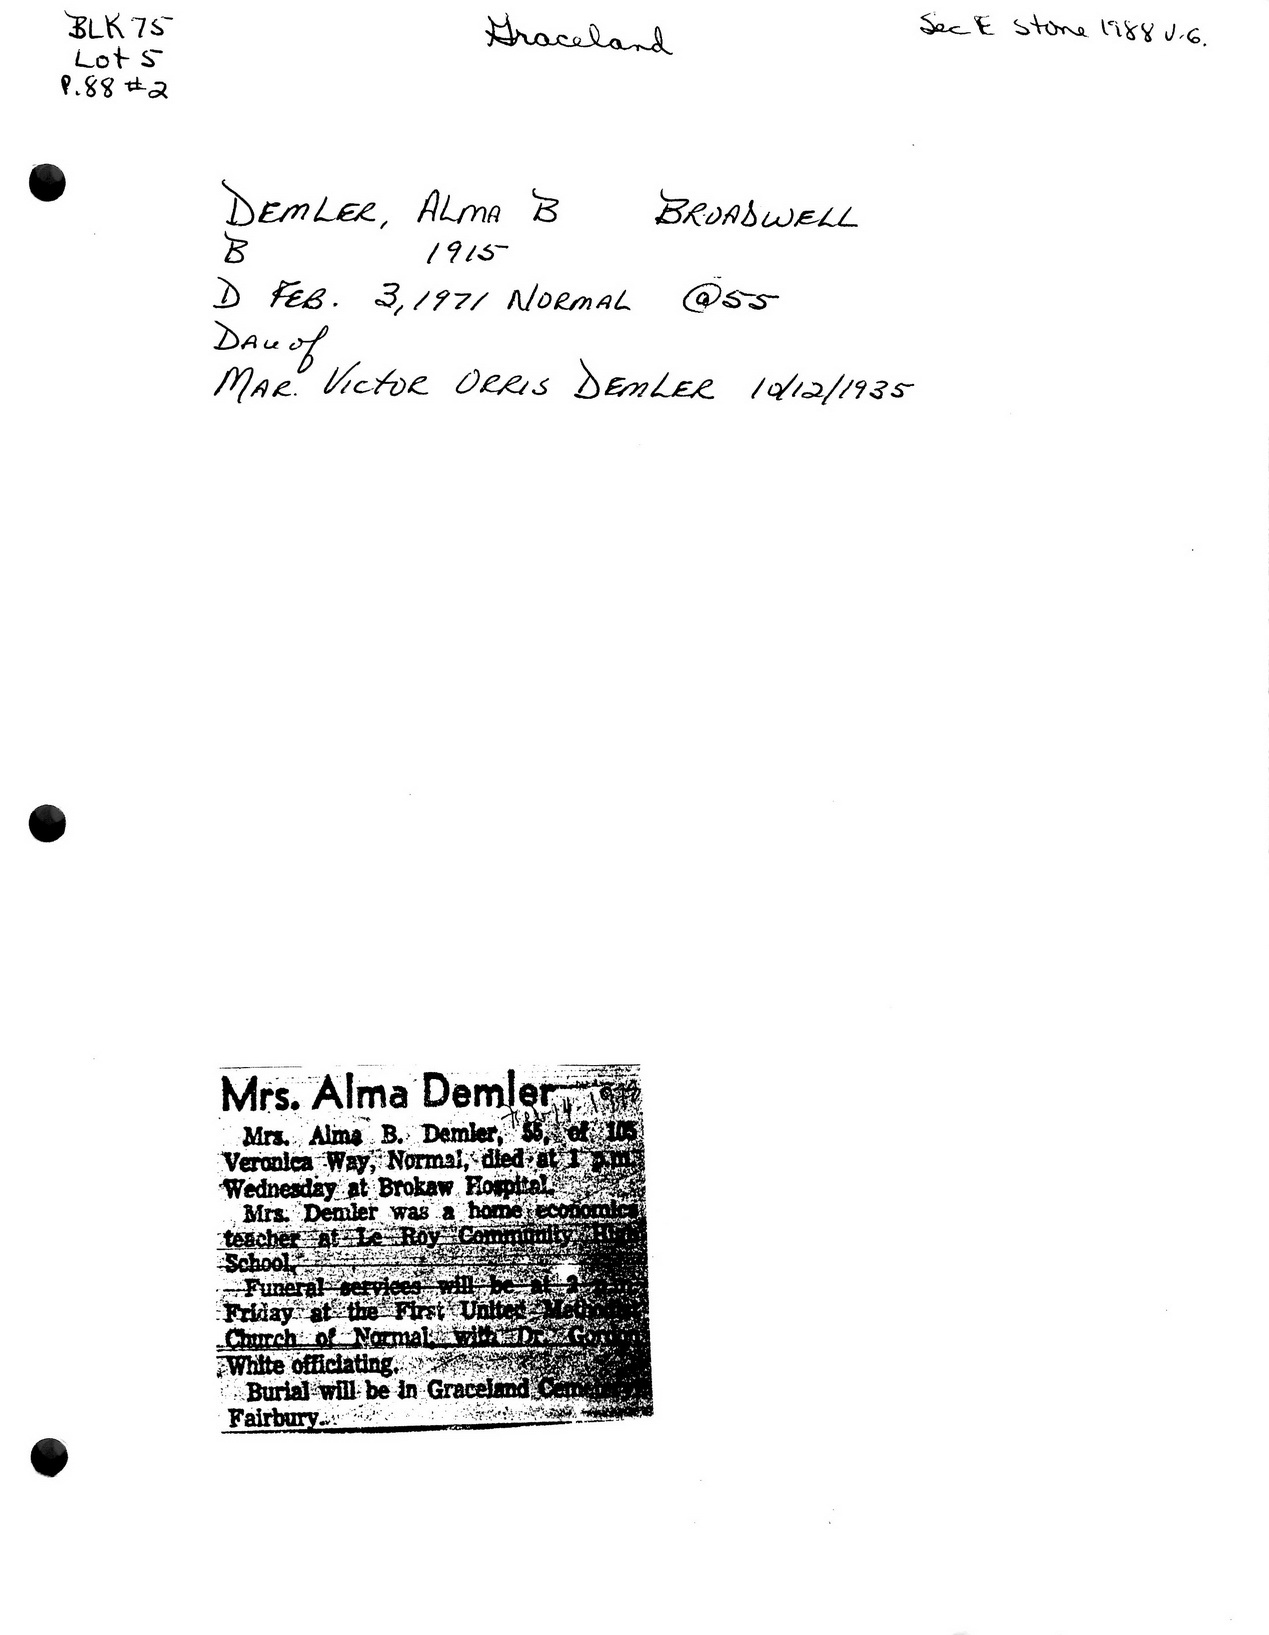 BLK 75
Lot 5
P.88 #2
Graceland
Sec E Stone 1988 J.G.
DEMLER, ALMA B BROADWELL
B 1915
D FEB. 3, 1971 NORMAL @55
DAU of
MAR. VICTOR ORRIS DEMLER 10/12/1935
Mrs. Alma Demler
Mrs. Alma B. Demler, 55, of 105
Veronica Way, Normal, died at 1 p.m.
Wednesday at Brokaw Hospital.
Mrs. Demler was a home economics
teacher at Le Roy Community High
School.
Funeral services will be at
Friday at the First United Methodist
Church of Normal, with Dr. Gordon
White officiating.
Burial will be in Graceland Cemetery,
Fairbury.